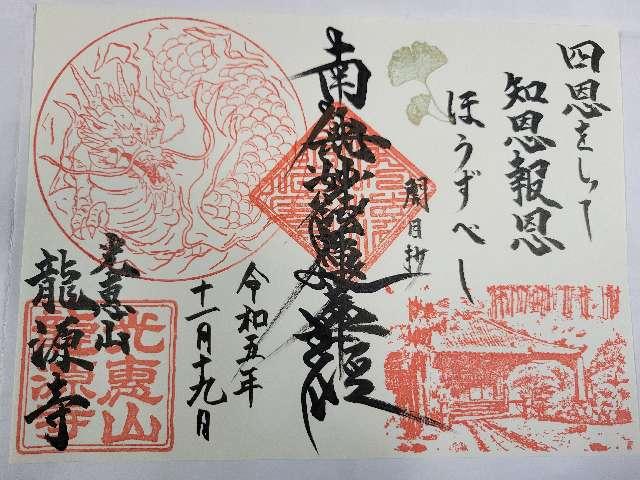 四恩をしって
知恩報恩
ほうずべし
開目抄
南無妙法蓮華経
令和五年
十一月十九月
光恵山
龍源寺
光恵山
龍源寺